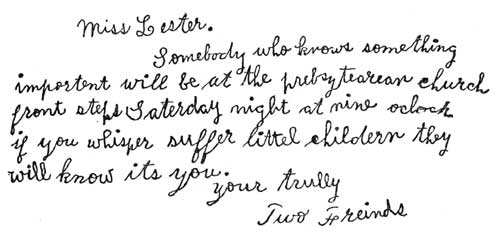 Miss Lester.
Somebody who knows something
importent will be at the prebsytearean church
front steps Saterday night at nine oclock
if you whisper suffer littel childern they
will know its you.
your trully
Two Freinds